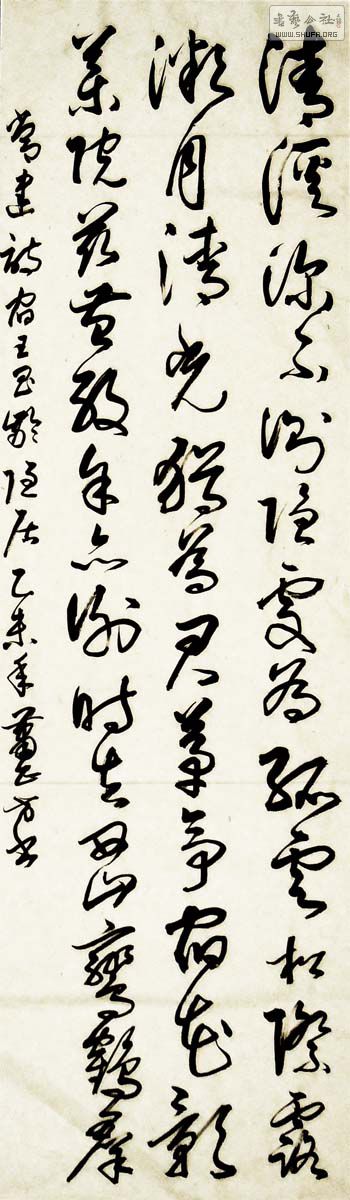 書藝公社
WWW.SHUFA.ORG
清溪深不測隱處為孤雲松際露
微月清光猶為君茅亭宿花影
藥院茲苔紋余亦謝時去西山鸞鶴羣
常建詩宿王昌齡隱居乙未年